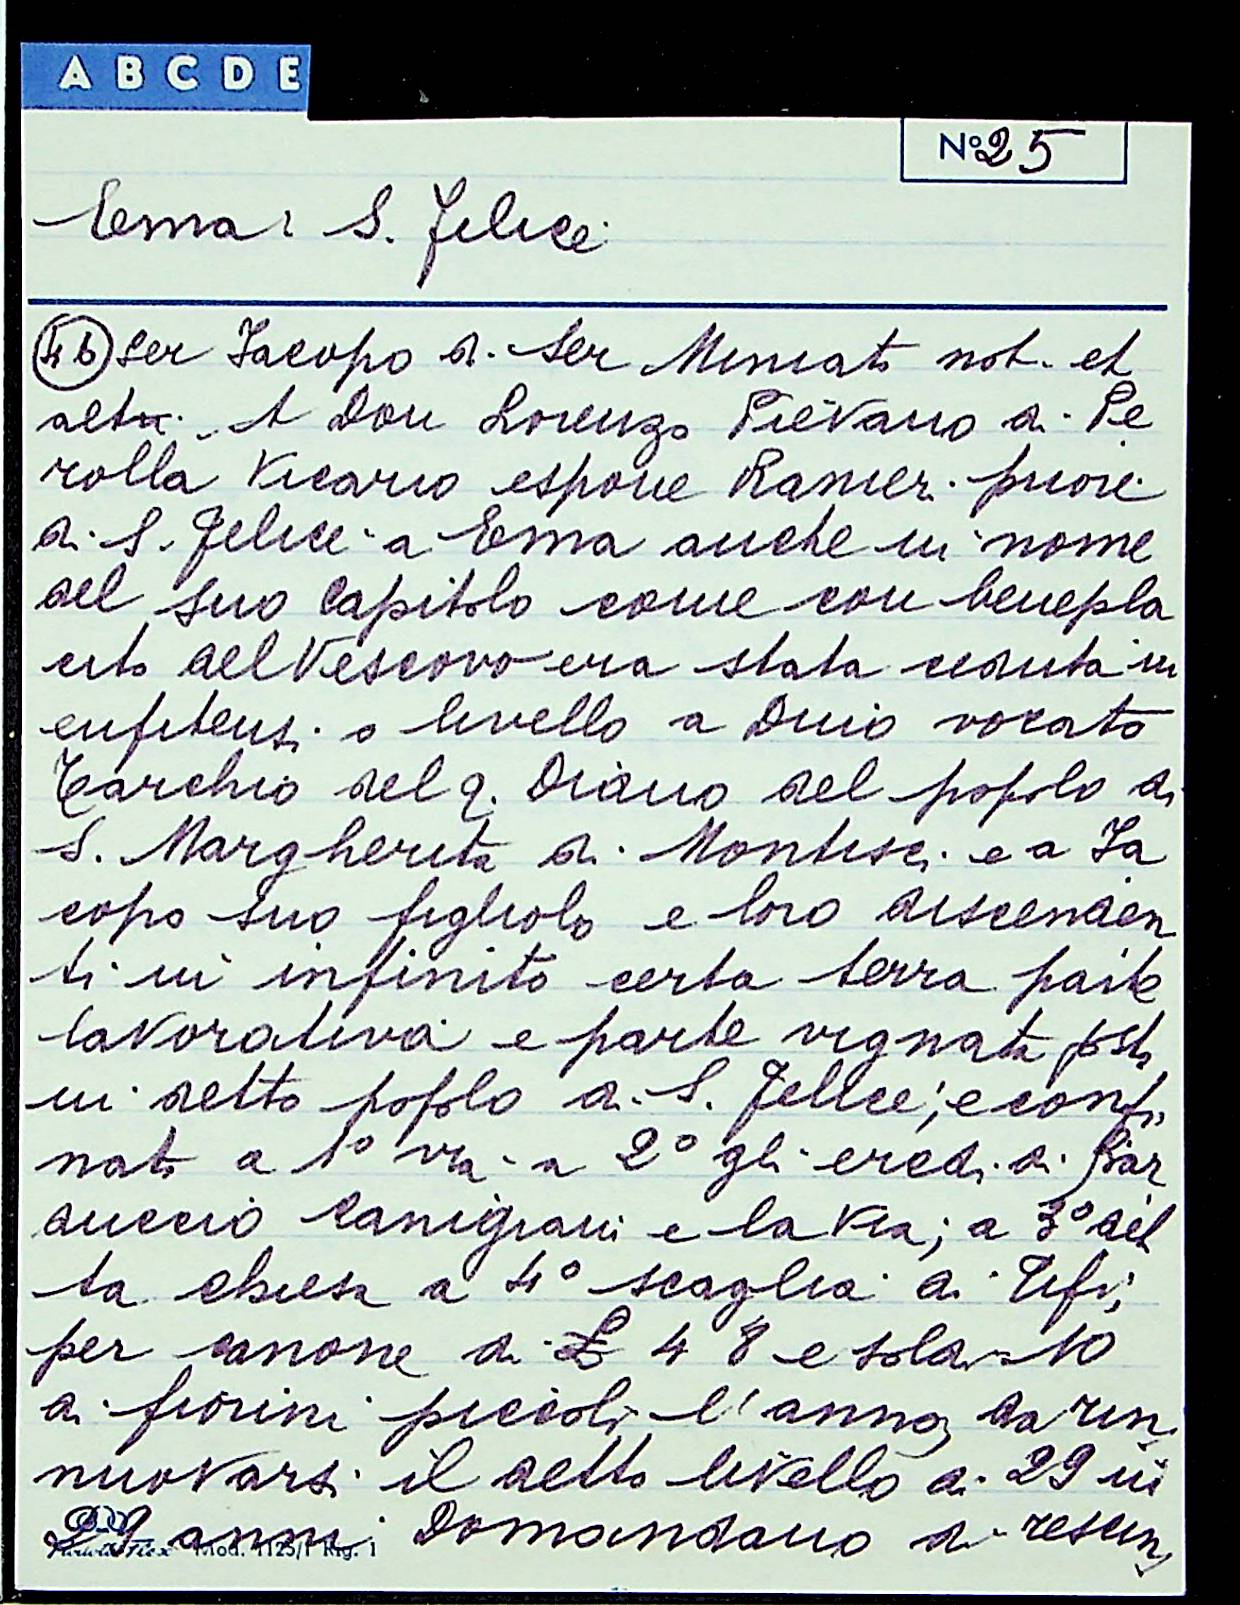 A B C D E
Nº 25
Ema: S. Felice
46 Ser Jacopo di Ser Miniato not. et
altri. A Don Lorenzo Pievano di Pe
rolla Vicario espone Ranieri priore
di S. Felice a Ema anche in nome
del suo Capitolo come con benepla
cito del Vescovo era stata ceduta in
enfiteusi o livello a Duio vocato
Tarchio del q. Diano del popolo di
S. Margherita di Montisci e a Ja
copo suo figliolo e loro discenden
ti in infinito certa terra parte
lavorativa e parte vignata posta
in detto popolo di S. Felice; e confi
nata a 1º via a 2º gli eredi di Bar
duccio Canigiani e la Via; a 3º det
ta chiesa a 4º scaglia di Tifi;
per canone di £ 48 e soldi 10
di fiorini piccoli l'anno, da rin
nuovarsi il detto livello di 29 in
29 anni. Domandano di rescin
Mod. 1125/1 Rig. 1